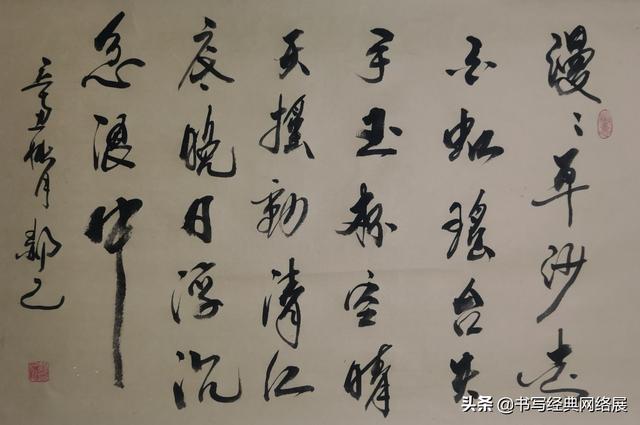 漫〻平沙走
白虹瑶台失
手玉杯空晴
天摇动清江
底晚日浮沉
急浪中
辛丑秋月
头条 @书写经典网络展